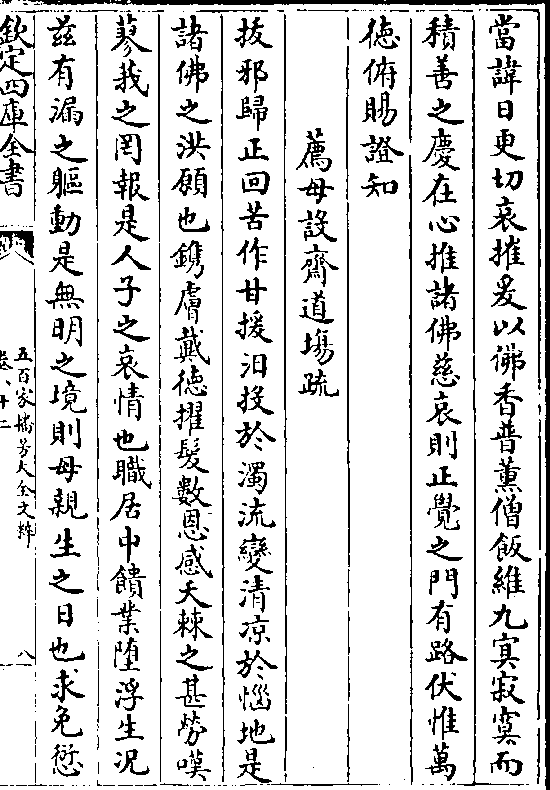 當諱日更切哀摧爰以佛香普薰僧飯維九㝠寂寞而
積善之慶在心推諸佛慈哀則正覺之門有路伏惟萬
徳俯賜證知
薦母設齋道場疏
拔邪歸正回苦作甘援汨投於濁流變清凉於惱地是
諸佛之洪願也鐫膚戴徳擢髮數恩感夭棘之甚勞嘆
蓼莪之罔報是人子之哀情也職居中饋業墮浮生况
兹有漏之軀動是無明之境則母親生之日也求免愆
欽定四庫全書
五百家播芳大全文粹
八